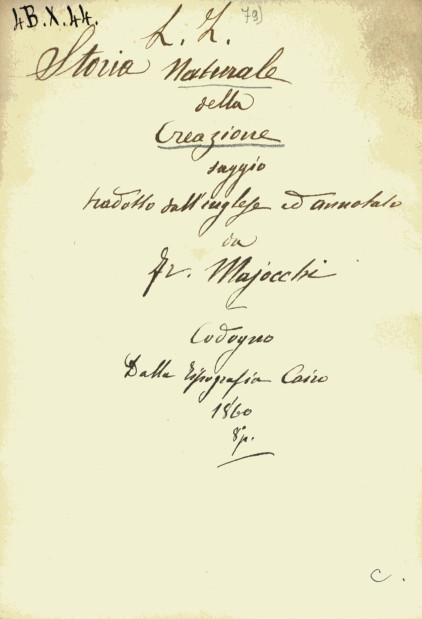 4B.X.44.
79)
L. Z.
Storia Naturale
della
Creazione
saggio
tradotto dall'inglese ed annotato
da
Fr. Majocchi
Codogno
Dalla Tipografia Cairo
1860
8°p.
C.